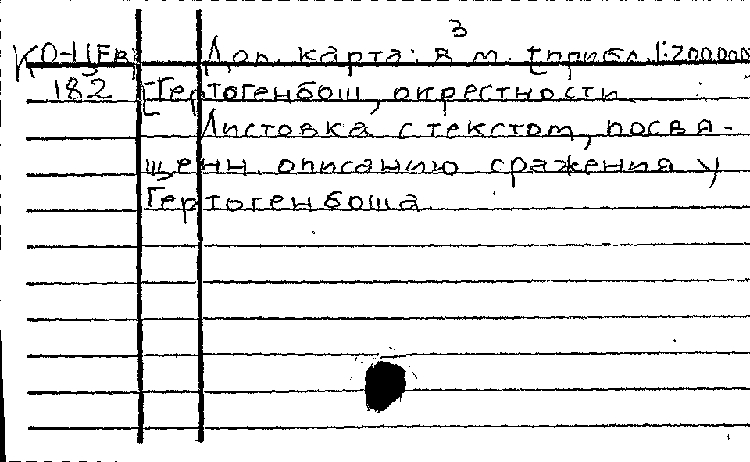 3
КО-11ЕВ Доп. карта: в м. [прибл. 1:200000
182 [Гертогенбош, окрестности
Листовка с текстом, посвя-
щенн. описанию сражения у
Гертогенбоша